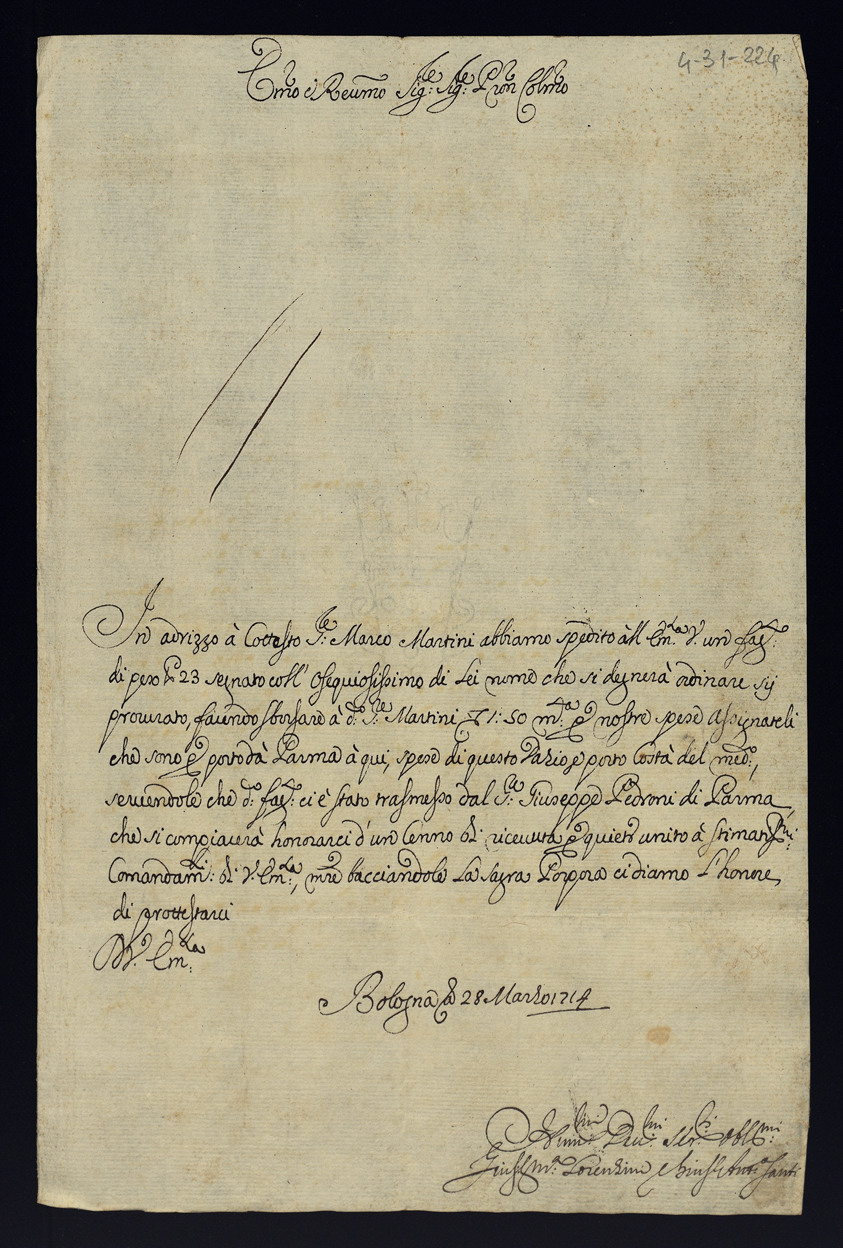 4-31-224
Em.o e Reu.mo Sig.re Sig.re P.ron Col.mo
In adrizzo à Cottesto S.re Marco Martini abbiamo spedito all' Em.za V. un fag.to
di peso 23 segnato coll' osequiosissimo di Lei nome che si degnerà ordinare sij
procurato, facendo sborsare à d.o S.re Martini 1:50 m.ta p nostre spese Assignateli
che sono p porto dà Parma à qui, spese di questo Dazio, e porto Costà del med.o,
seruendole che d.o fag.to ci è stato trasmesso dal S.r Giuseppe Pedroni di Parma,
che si compiacerà honorarci d'un Cenno di riceuuta p quiete unito à stimatis.mi
Comandam.ti di V. Em.za, m.re bacciandole La Sagra Porpora ci diamo L'honore
di prottestarci
D V. Em.za
Bologna li 28 Marzo 1714
Hum.mi Deu.mi Ser.i obl.mi
Gius. M.a Lorenzini e Gius. Ant.o Santi